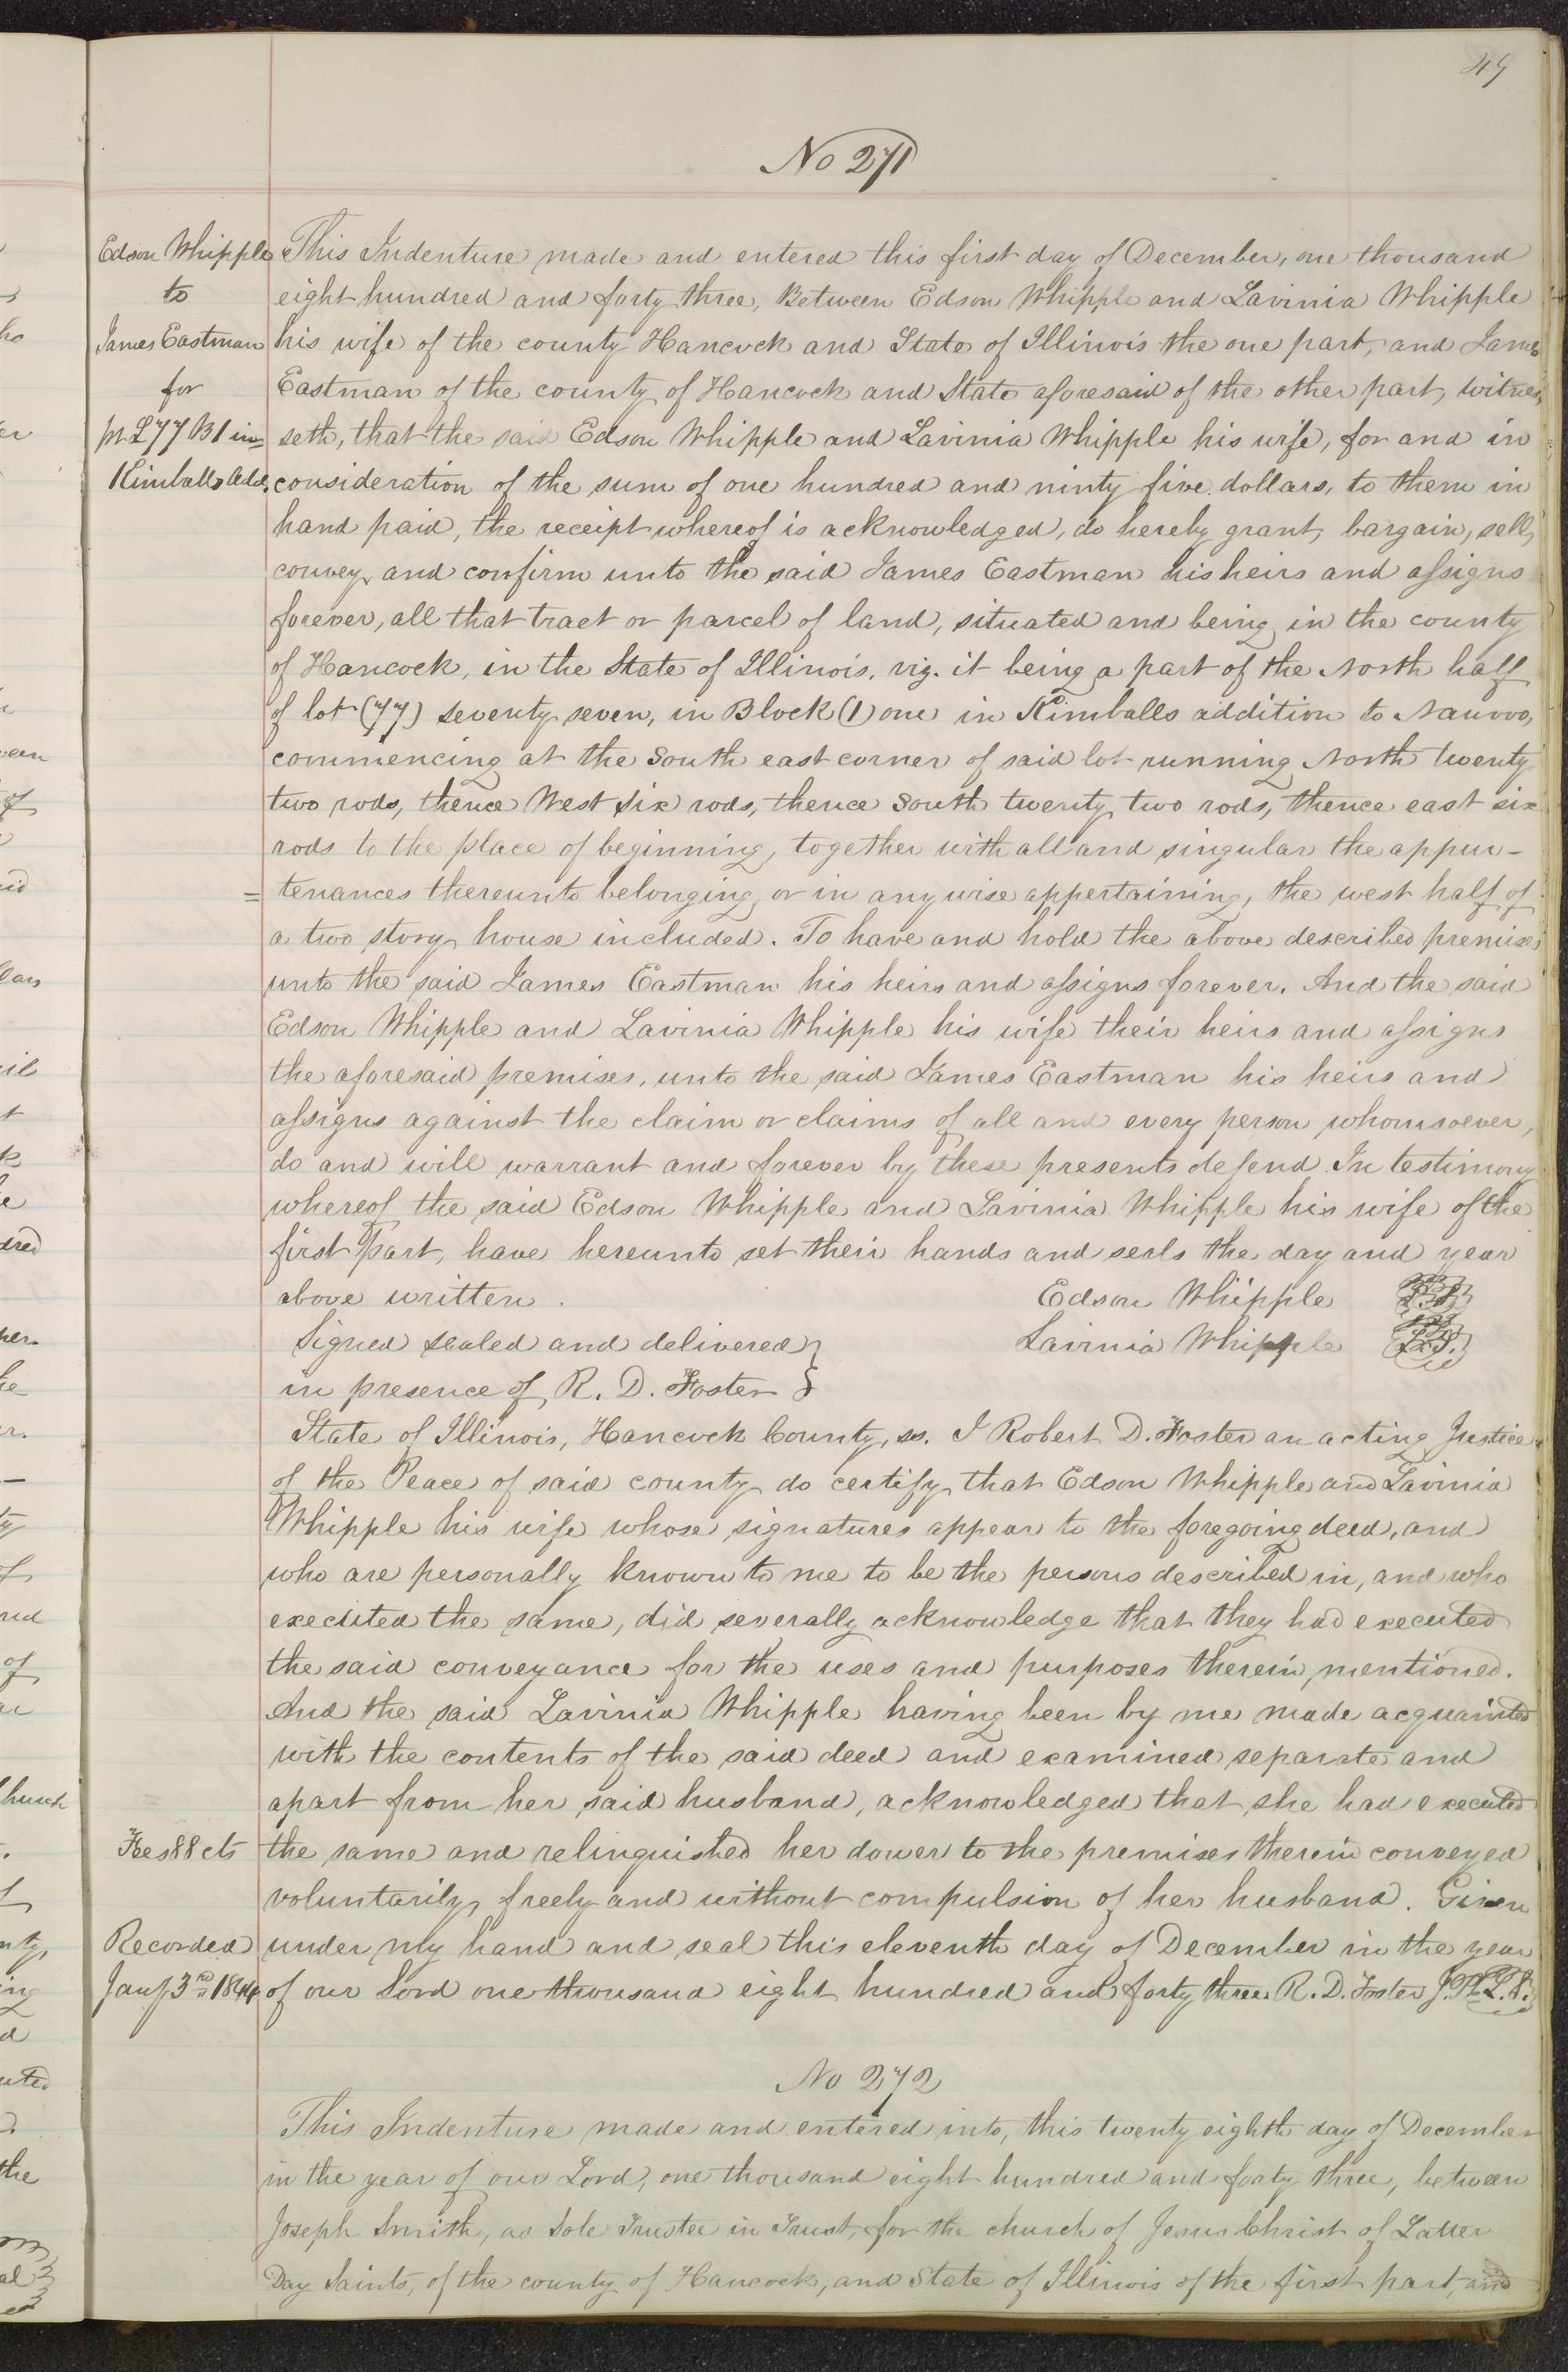 49
No 271
Edson Whipple
to
James Eastman
for
pt L 77 B 1 in
Kimballs Add.
This Indenture made and entered this first day of December, one thousand
eight hundred and forty three, Between Edson Whipple and Lavinia Whipple
his wife of the county Hancock and State of Illinois the one part, and James
Eastman of the county of Hancock and State aforesaid of the other part, witnes,
seth, that the said Edson Whipple and Lavinia Whipple his wife, for and in
consideration of the sum of one hundred and ninty five dollars, to them in
hand paid, the receipt whereof is acknowledged, do hereby grant, bargain, sell,
convey, and confirm unto the said James Eastman his heirs and assigns
forever, all that tract or parcel of land, situated and being in the county
of Hancock, in the State of Illinois, viz. it being a part of the North half
of lot (77) seventy seven, in Block (1) one in Kimballs addition to Nauvoo,
commencing at the South east corner of said lot running North twenty
two rods, thence West six rods, thence South twenty two rods, thence east six
rods to the place of beginning, together with all and singular the appur-
= tenances thereunto belonging, or in any wise appertaining, the west half of
a two story house included. To have and hold the above described premises
unto the said James Eastman his heirs and assigns forever. And the said
Edson Whipple and Lavinia Whipple his wife their heirs and assigns
the aforesaid premises, unto the said James Eastman his heirs and
assigns against the claim or claims of all and every person whomsoever,
do and will warrant and forever by these presents defend. In testimony
whereof the said Edson Whipple and Lavinia Whipple his wife of the
first Part, have hereunto set their hands and seals the day and year
above written. Edson Whipple L.S.
Signed sealed and delivered } Lavinia Whipple L.S.
in presence of R. D. Foster }
State of Illinois, Hancock County, ss. I Robert D. Foster an acting Justice
of the Peace of said county do certify that Edson Whipple and Lavinia
Whipple his wife whose signatures appear to the foregoing deed, and
who are personally known to me to be the persons described in, and who
executed the same, did severally acknowledge that they had executed
the said conveyance for the uses and purposes therein mentioned.
And the said Lavinia Whipple having been by me made acquainted
with the contents of the said deed and examined separate and
apart from her said husband, acknowledged that she had executed
Fees 88 cts
the same and relinquished her dower to the premises therein conveyed
voluntarily, freely and without compulsion of her husband. Given
Recorded
under my hand and seal this eleventh day of December in the year
Jany 3rd 1844
of our Lord one thousand eight hundred and forty three R. D. Foster J.P. L.S.
No 272
This Indenture made and entered into, this twenty eighth day of December
in the year of our Lord, one thousand eight hundred and forty three, between
Joseph Smith, as Sole Trustee in Trust, for the church of Jesus Christ of Latter
Day Saints, of the county of Hancock, and State of Illinois of the first part, and